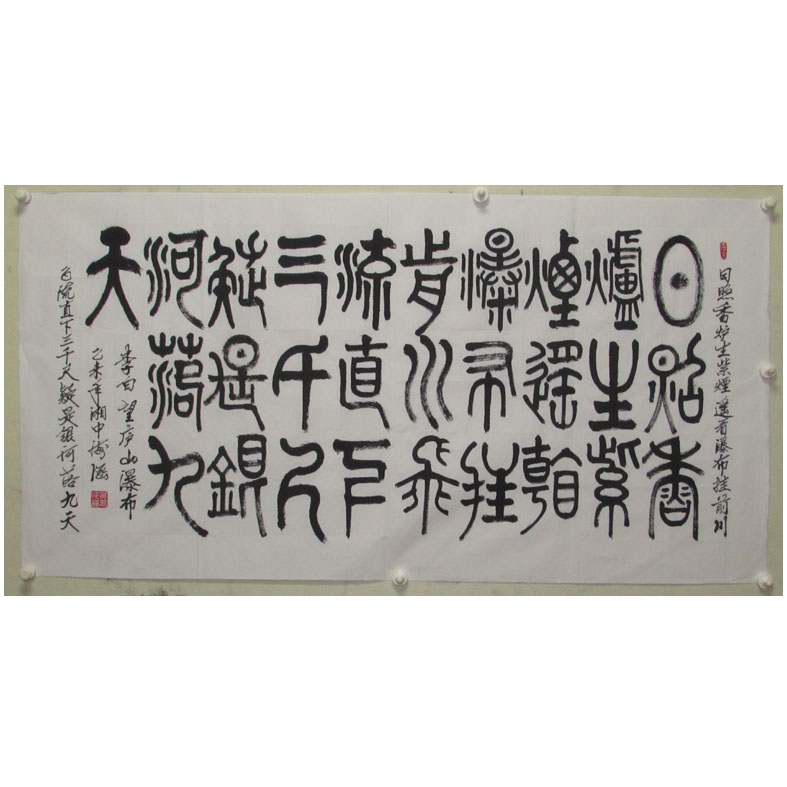 日照香炉生紫煙遥看瀑布挂前川
日照香
爐生紫
煙遥看
瀑布挂
前川飛
流直下
三千尺
疑是銀
河落九
天
李白望庐山瀑布
乙未年湘中
飞流直下三千尺疑是银河落九天